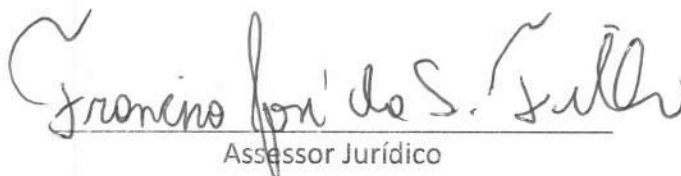 Francisco José da S. Filho
Assessor Jurídico